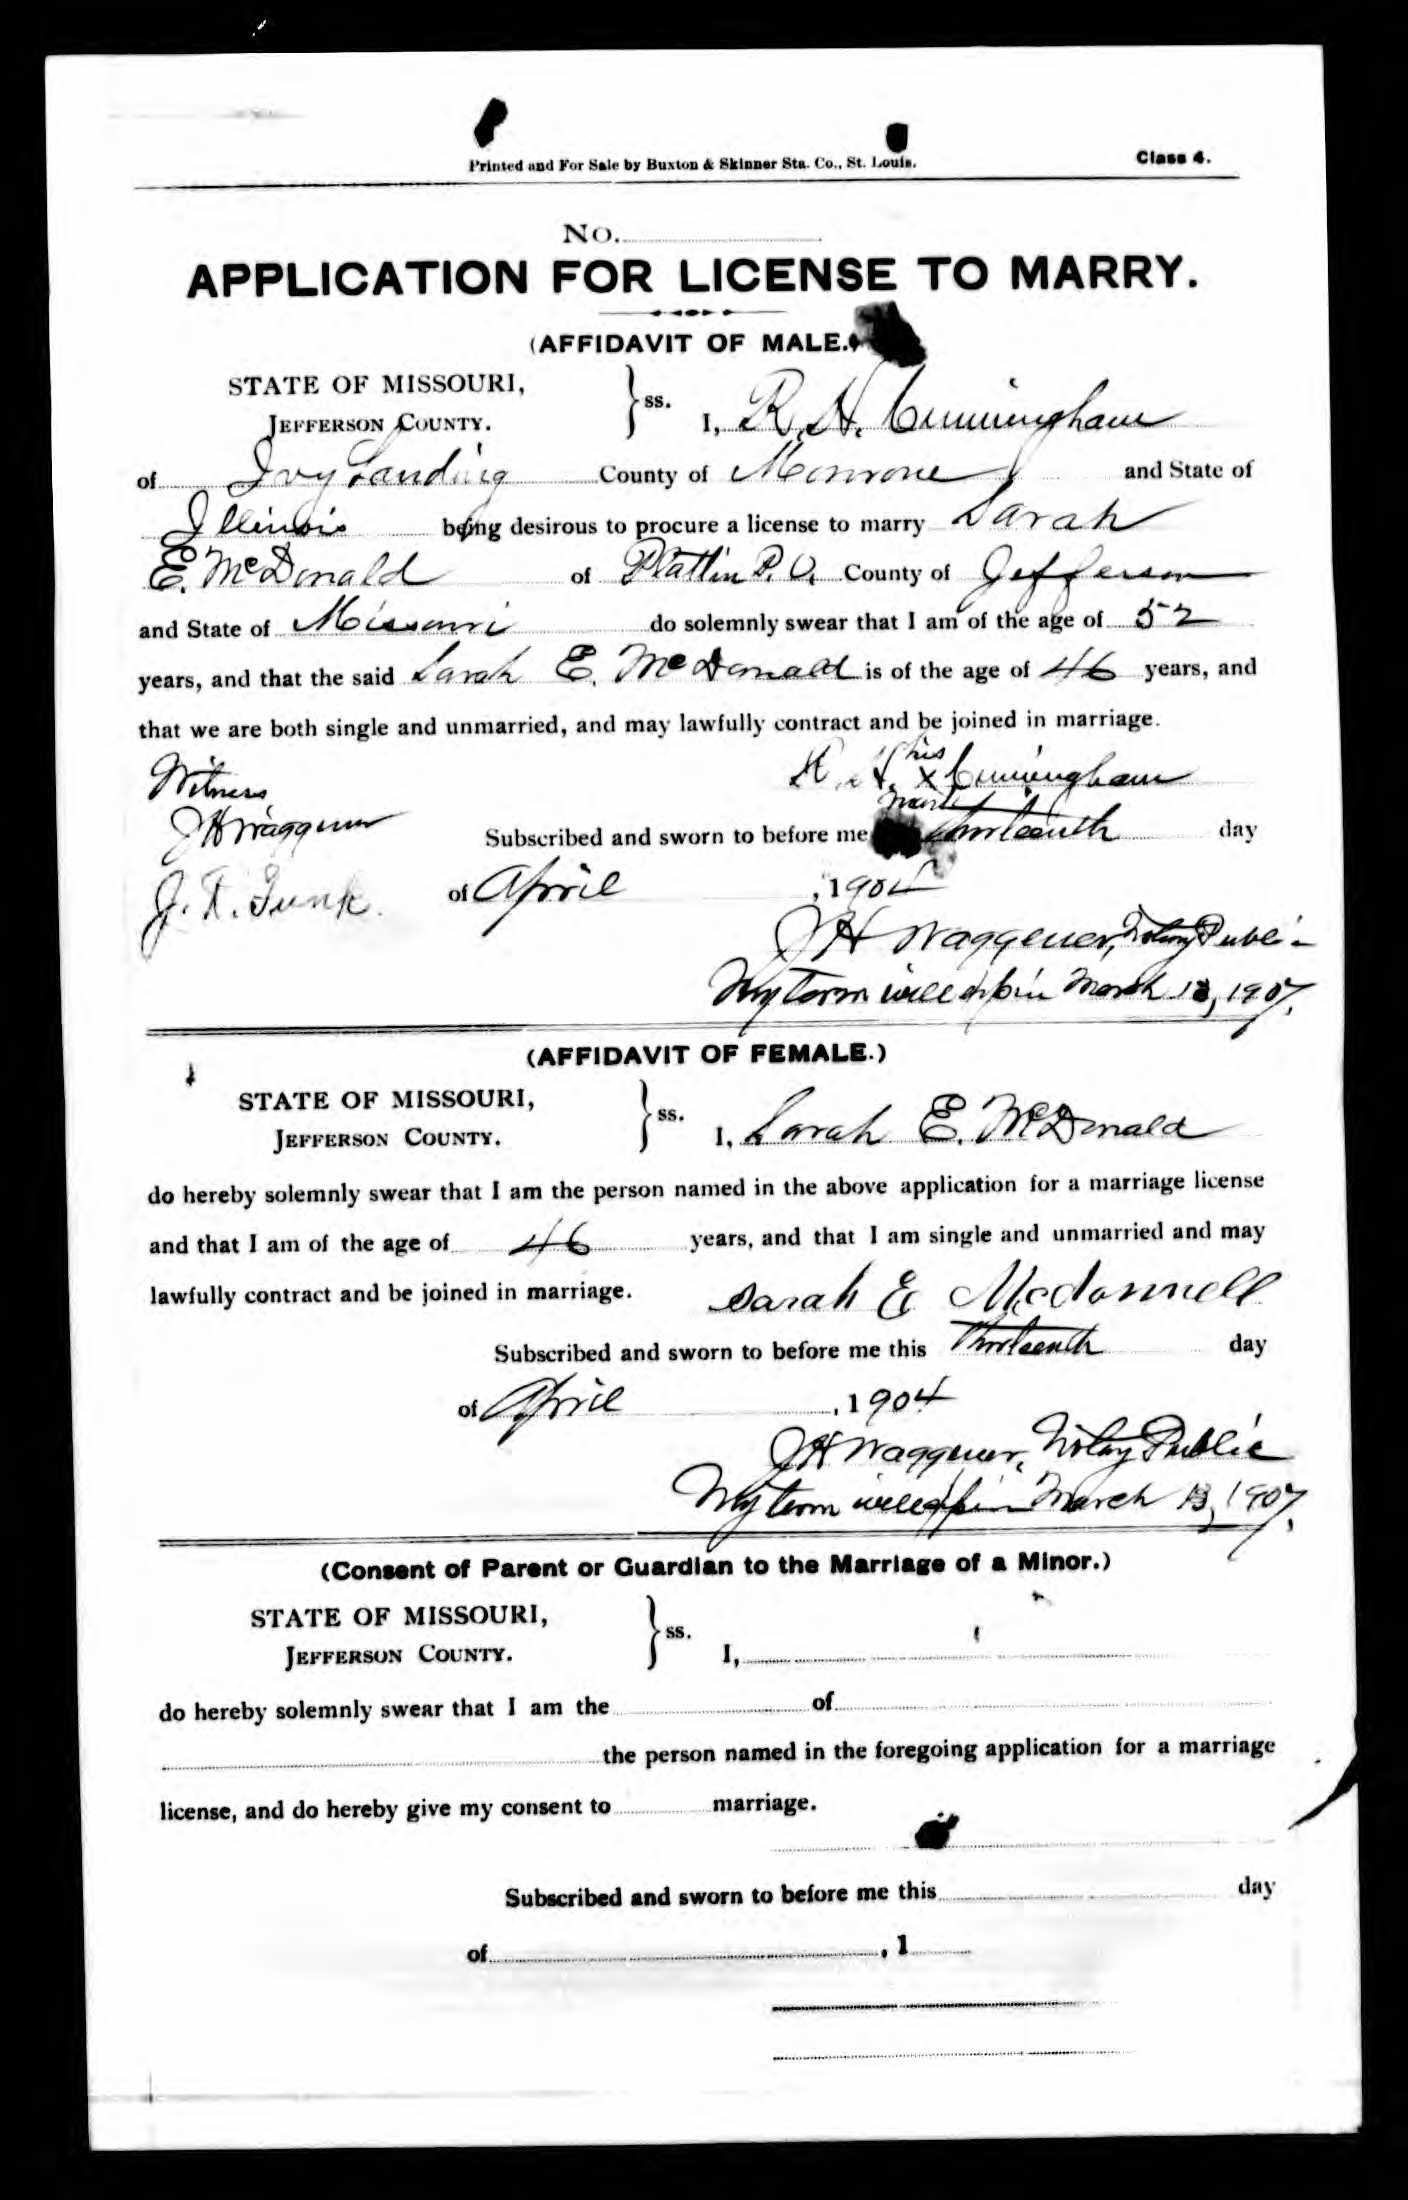 Printed and For Sale by Buxton & Skinner Sta. Co., St. Louis.
Class 4.
No.
APPLICATION FOR LICENSE TO MARRY.
(AFFIDAVIT OF MALE.)
STATE OF MISSOURI,
JEFFERSON COUNTY.
ss.
I, R. H. Cunningham
of Ivy Landing County of Monrone and State of
Illinois being desirous to procure a license to marry Sarah
E. McDonald of Plattin P. O. County of Jefferson
and State of Missouri do solemnly swear that I am of the age of 52
years, and that the said Sarah E. McDonald is of the age of 46 years, and
that we are both single and unmarried, and may lawfully contract and be joined in marriage.
Witness
R. H. his x Cunningham
mark
J H Waggener
Subscribed and sworn to before me thirteenth day
J. R. Funk.
of April, 1904
J H Waggener, Notary Public
My Term will expire March 13, 1907.
(AFFIDAVIT OF FEMALE.)
STATE OF MISSOURI,
JEFFERSON COUNTY.
ss.
I, Sarah E. McDonald
do hereby solemnly swear that I am the person named in the above application for a marriage license
and that I am of the age of 46 years, and that I am single and unmarried and may
lawfully contract and be joined in marriage.
Sarah E Mcdonnell
Subscribed and sworn to before me this Thirteenth day
of April, 1904
J H Waggener, Notary Public
My term will expire March 13, 1907.
(Consent of Parent or Guardian to the Marriage of a Minor.)
STATE OF MISSOURI,
JEFFERSON COUNTY.
ss.
I,
do hereby solemnly swear that I am the of
the person named in the foregoing application for a marriage
license, and do hereby give my consent to marriage.
Subscribed and sworn to before me this day
of , 1